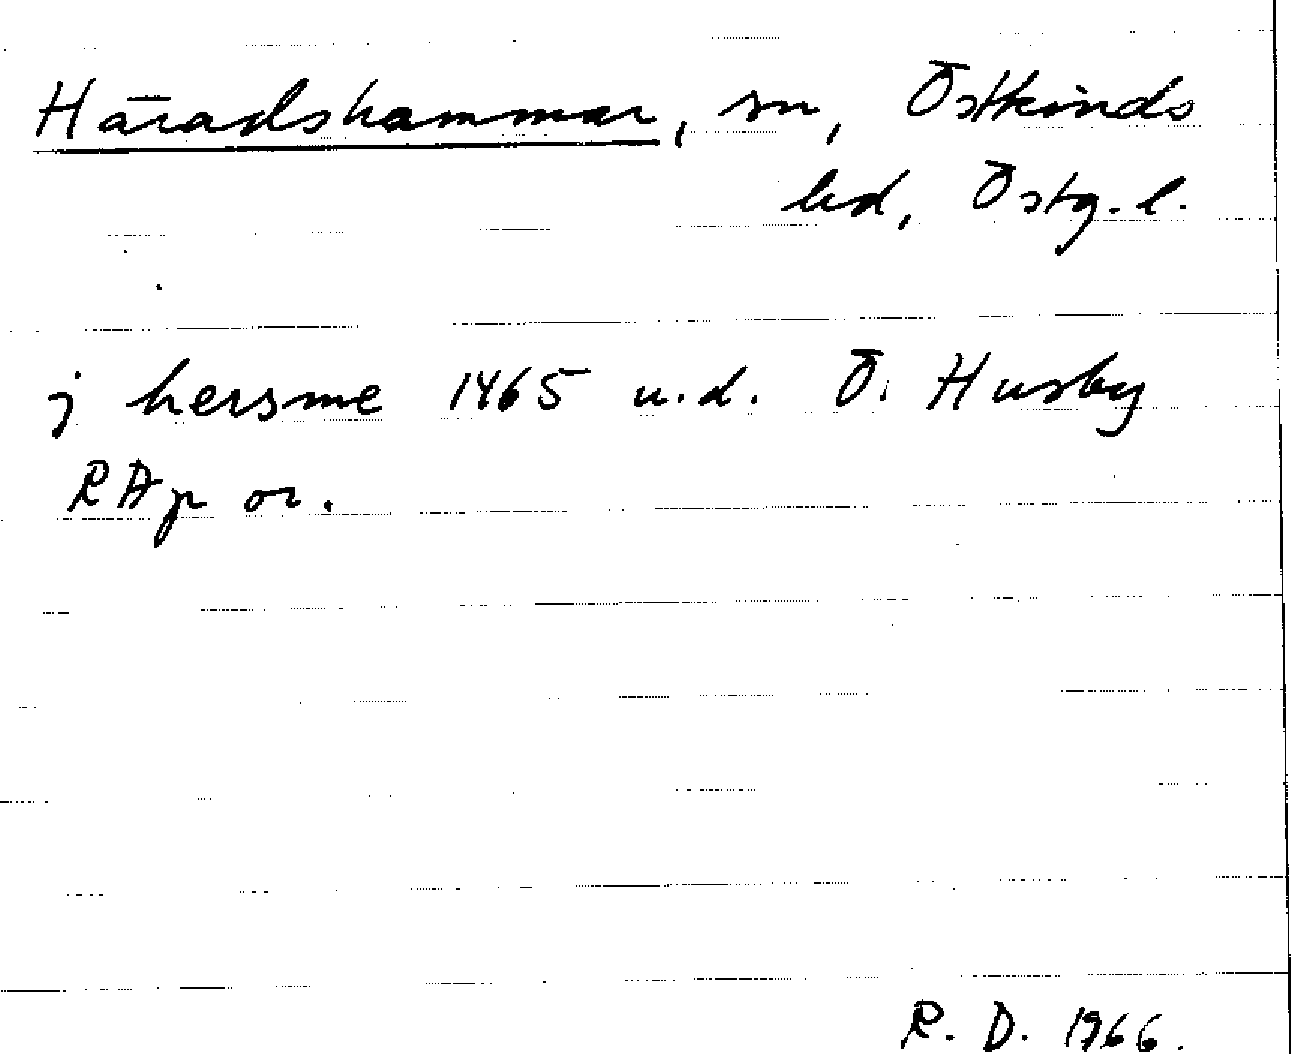 Häradshammar, sn, Östkinds
hd, Östg. l.
j hersme 1465 u.d. Ö. Husby
RAp or.
R. D. 1966.